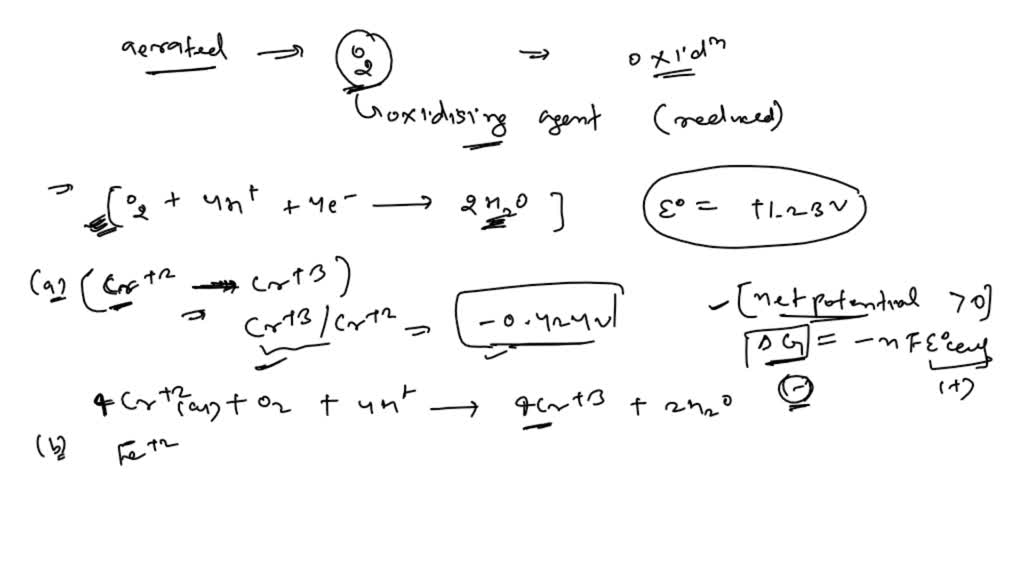 aerated → O2 ⇒ oxidn
↳ oxidising agent (reduced)
⇒ [O2 + 4H+ + 4e- → 2H2O] ε° = +1.23V
(a) (Cr+2 → Cr+3)
⇒ Cr+3/Cr+2 ⇒ -0.424V
✓ [net potential > 0]
ΔG = -nFε°cell
(-) (+)
4Cr+2(aq) + O2 + 4H+ → 4Cr+3 + 2H2O
(b) Fe+2